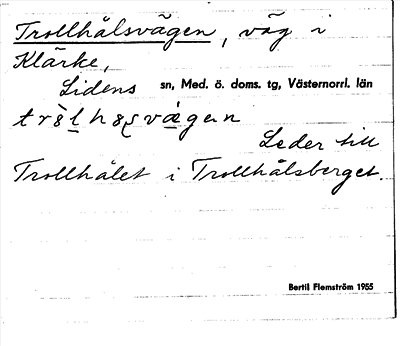 Trollhålsvägen, väg i
Klärke,
Lidens sn, Med. ö. doms. tg, Västernorrl. län
Leder till
Trollhålet i Trollhålsberget.
Bertil Flemström 1955